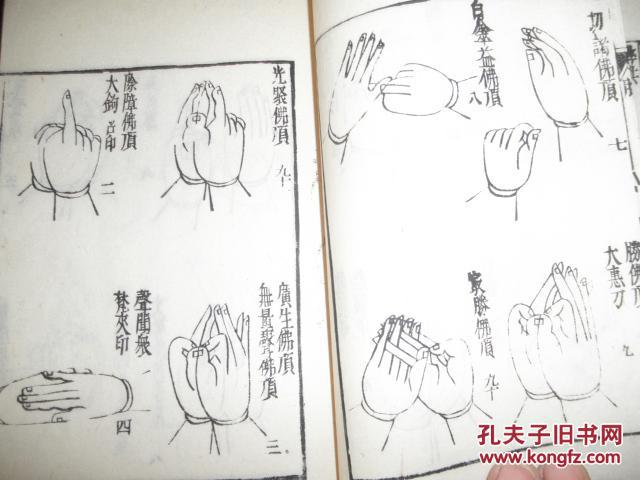 佛頂
七
白傘蓋佛頂
八
勝佛頂
大惠刀
九
最勝佛頂
九十
光聚佛頂
九十
除障佛頂
大鉤召印
二
廣生佛頂
無量聲佛頂
三
聲聞衆
梵夾印
四
孔夫子旧书网
www.kongfz.com